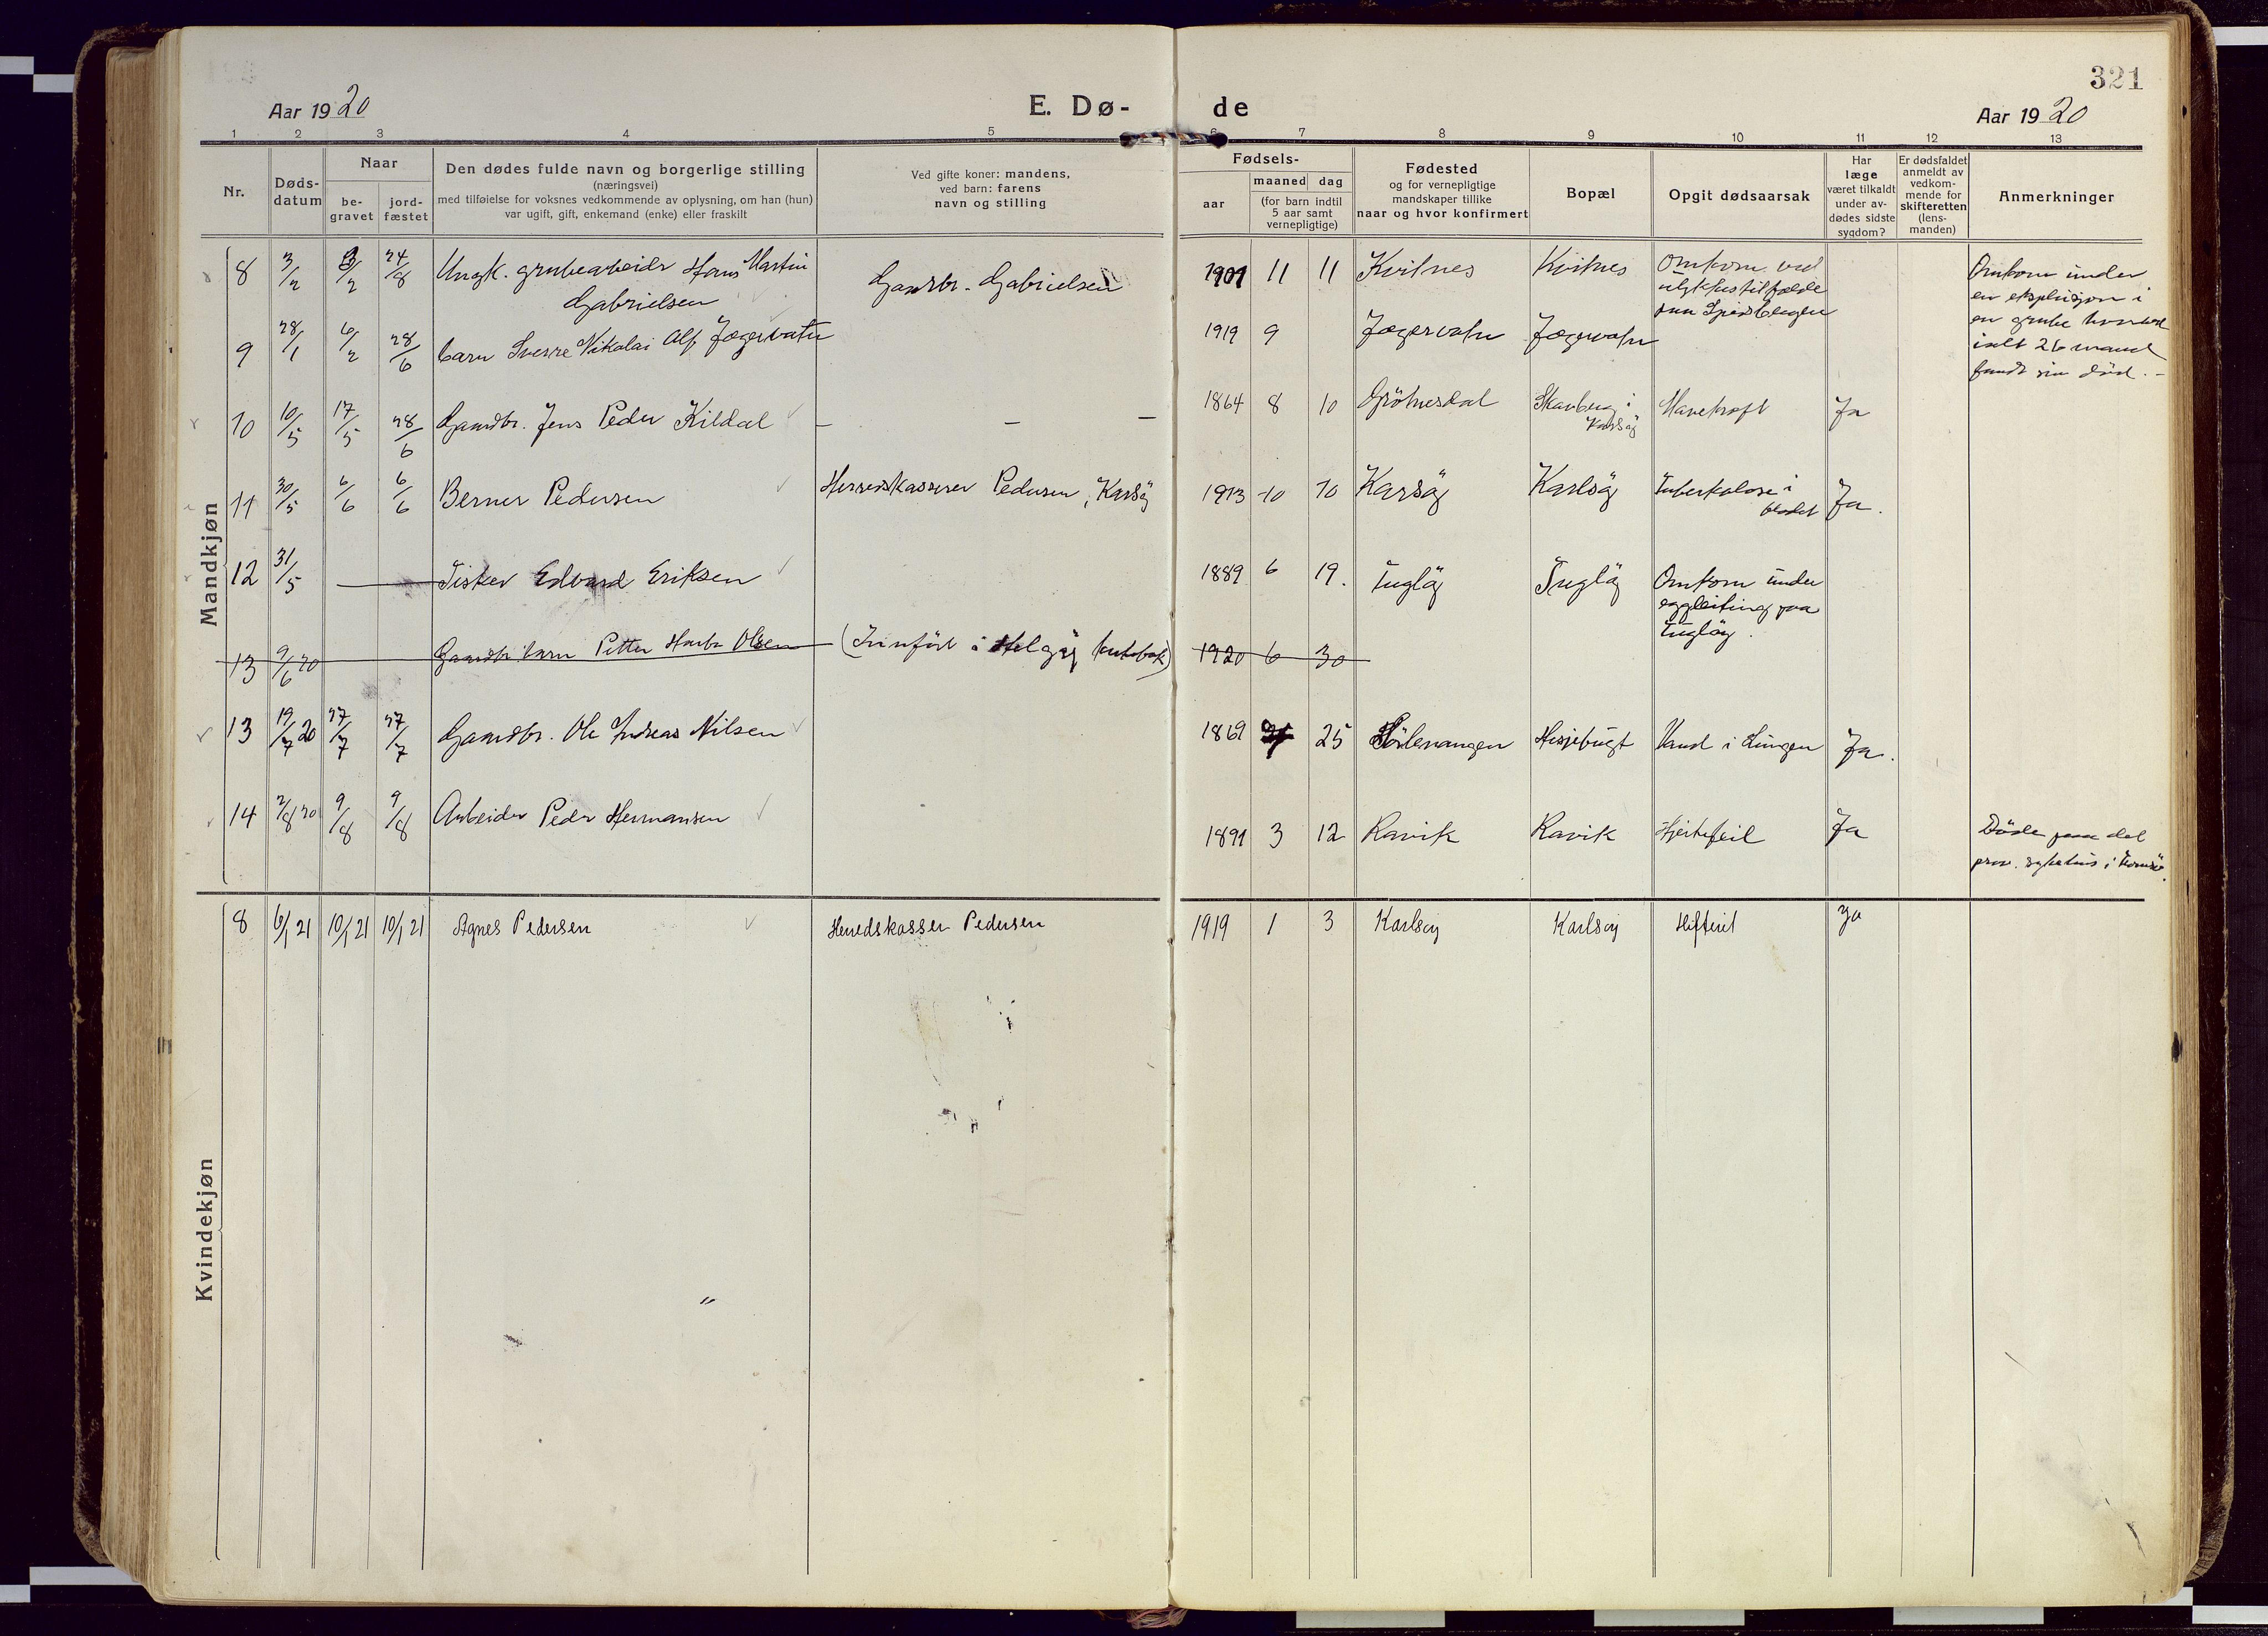 321
Aar 1920 E. Dø- de Aar 1920
1 2 3 4 5 6 7 8 9 10 11 12 13
Nr.
Døds-
datum
Naar
be-
gravet
jord-
fæstet
Den dødes fulde navn og borgerlige stilling
(næringsvei)
med tilføielse for voksnes vedkommende av oplysning, om han (hun)
var ugift, gift, enkemand (enke) eller fraskilt
Ved gifte koner: mandens,
ved barn: farens
navn og stilling
Fødsels-
aar
maaned dag
(for barn indtil
5 aar samt
vernepligtige)
Fødested
og for vernepligtige
mandskaper tillike
naar og hvor konfirmert
Bopæl
Opgit dødsaarsak
Har
læge
været tilkaldt
under av-
dødes sidste
sygdom?
Er dødsfaldet
anmeldt av
vedkom-
mende for
skifteretten
(lens-
manden)
Anmerkninger
Mandkjøn
8 3/2 3/2 24/8 Ungk. grubearbeidr Hans Martin
Gabrielsen
Gaardbr. Gabrielsen
1901 11 11 Kvitnes Kvitnes Omkom ved
ulykkestilfælde
paa Spidsbergen
Omkom under
en eksplosjon i
en grube hvorved
ialt 26 mand
fandt sin död.-
9 28/1 6/2 28/6 barn Sverre Nikolai Alf Jægervatn
1919 9 Jægervatn Jægervatn
10 10/5 17/5 28/6 Gaardbr. Jens Peder Kildal - - -
1864 8 10 Grötnesdal Skarberg i
Karlsöy
Mavekræft Ja
11 30/5 6/6 6/6 Berner Pedersen Herredskasserer Pedersen, Karlsöy
1913 10 10 Karlsöy Karlsöy Tuberkulose i
blodet
Ja.
12 31/5 — Fisker Edvard Eriksen
1889 6 19. Fuglöy Fuglöy Omkom under
eggleiting paa
Fuglöy.
13 9/6 20 Gaardbr. barn Petter Olsen (Innfört i Helgöy kirkebok) 1920 6 30
13 19/7 20 27/7 27/7 Gaardbr. Ole Andreas Nilsen
1869 25 Sörlenangen Hessjebugt Vand i Lungen Ja.
14 2/8 20 9/8 9/8 Arbeider Peder Hermansen
1891 3 12 Ravik Ravik Hjertefeil Ja
Döde paa det
prov. sykehus i Tromsö.
Kvindekjøn
8 6/1 21 10/1 21 10/1 21 Agnes Pedersen Herredskasser Pedersen
1919 1 3 Karlsöy Karlsöy Ja